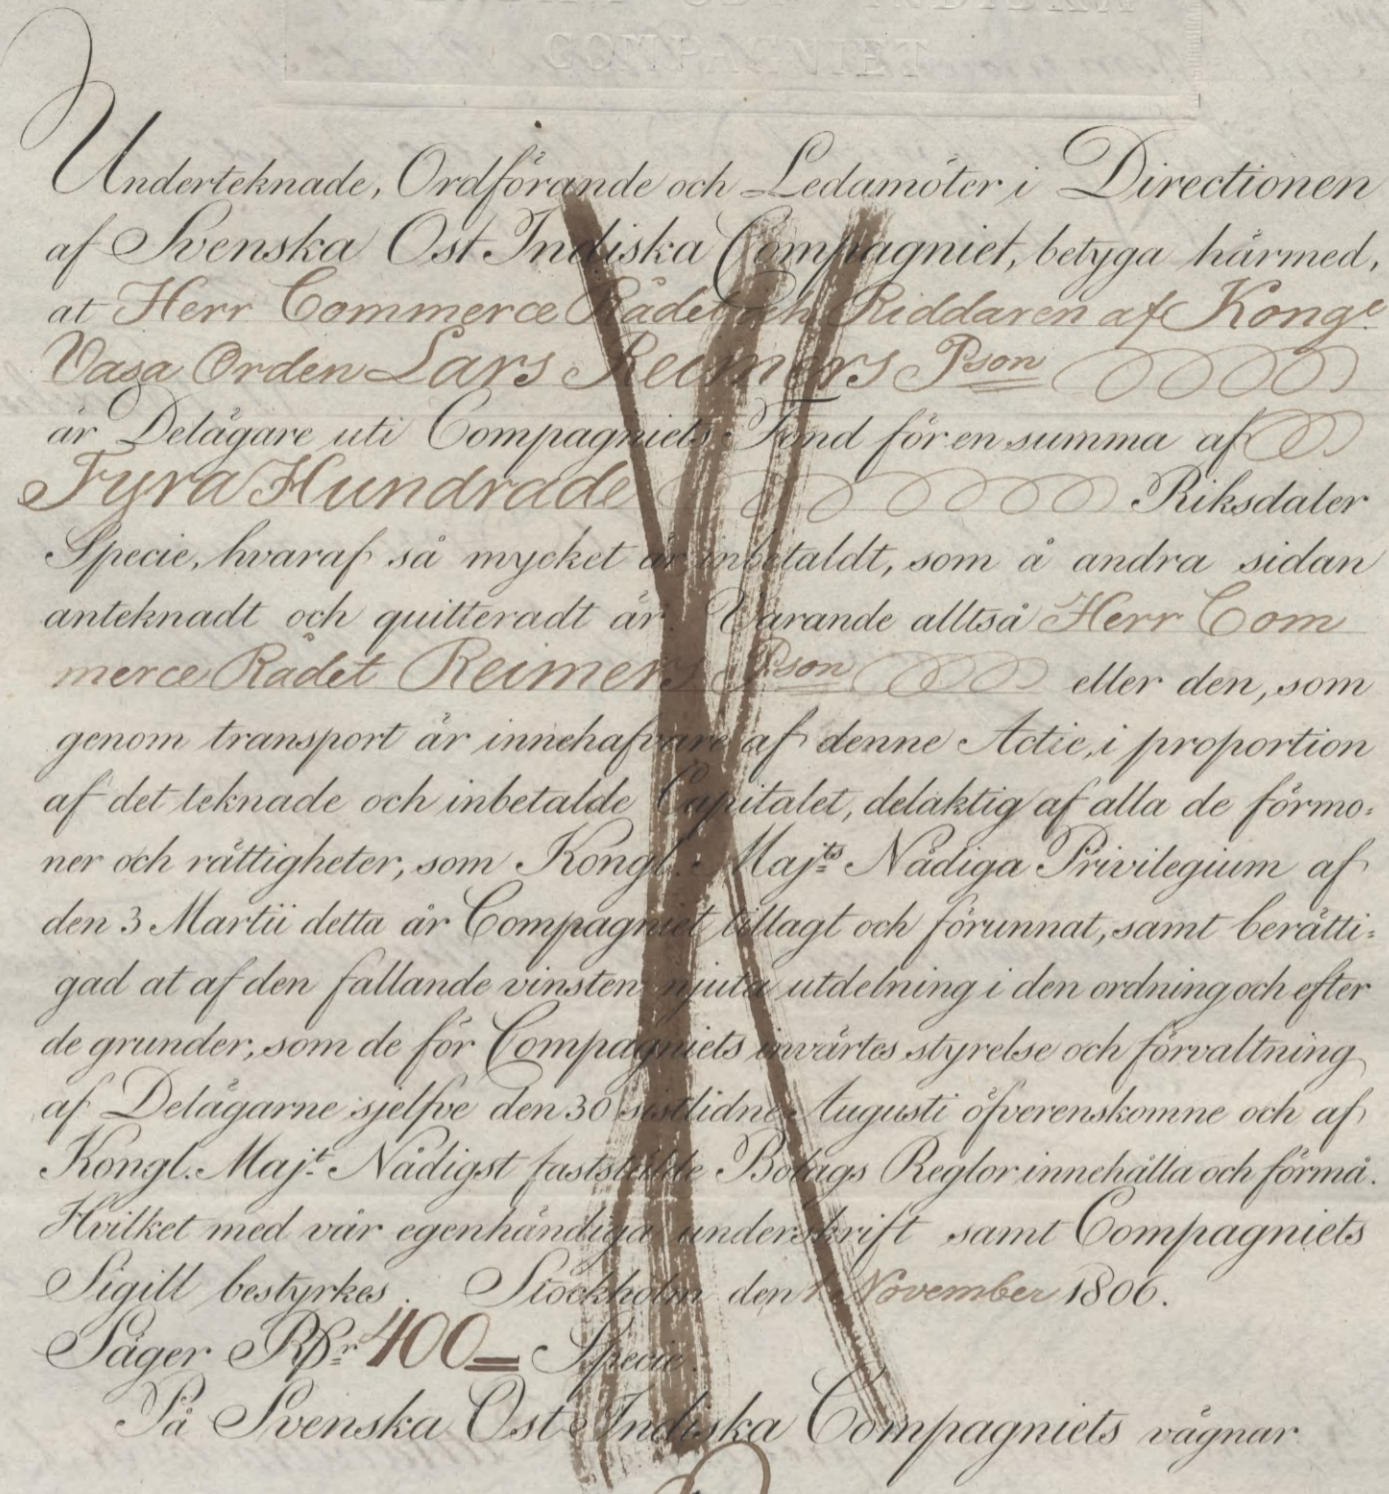 OST INDISKA
COMPAGNIET
Underteknade, Ordförande och Ledamöter i Directionen
af Svenska Ost Indiska Compagniet, betyga härmed,
at Herr Commerce Rådet och Riddaren af Kongl.
Vasa Orden Lars Reimers Pson
är Delägare uti Compagniets Fond för en summa af
Fyra Hundrade Riksdaler
Specie, hvaraf så mycket är inbetaldt, som å andra sidan
anteknadt och quitteradt är. Varande alltså Herr Com
merce Rådet Reimers Pson eller den, som
genom transport är innehafvare af denne Actie, i proportion
af det teknade och inbetalde Capitalet, delaktig af alla de förmo:
ner och rättigheter, som Kongl. Majts Nådiga Privilegium af
den 3 Martii detta år Compagniet tillagt och förunnat, samt berätti:
gad at af den fallande vinsten njuta utdelning i den ordning och efter
de grunder, som de för Compagniets invärtes styrelse och förvaltning
af Delägarne sjelfve den 30 sistlidne Augusti öfverenskomne och af
Kongl. Majt. Nådigst fastställde Bolags Reglor innehålla och förmå.
Hvilket med vår egenhändiga underskrift samt Compagniets
Sigill bestyrkes. Stockholm den 1 November 1806.
Säger RDr 400 = Specie.
På Svenska Ost Indiska Compagniets vägnar